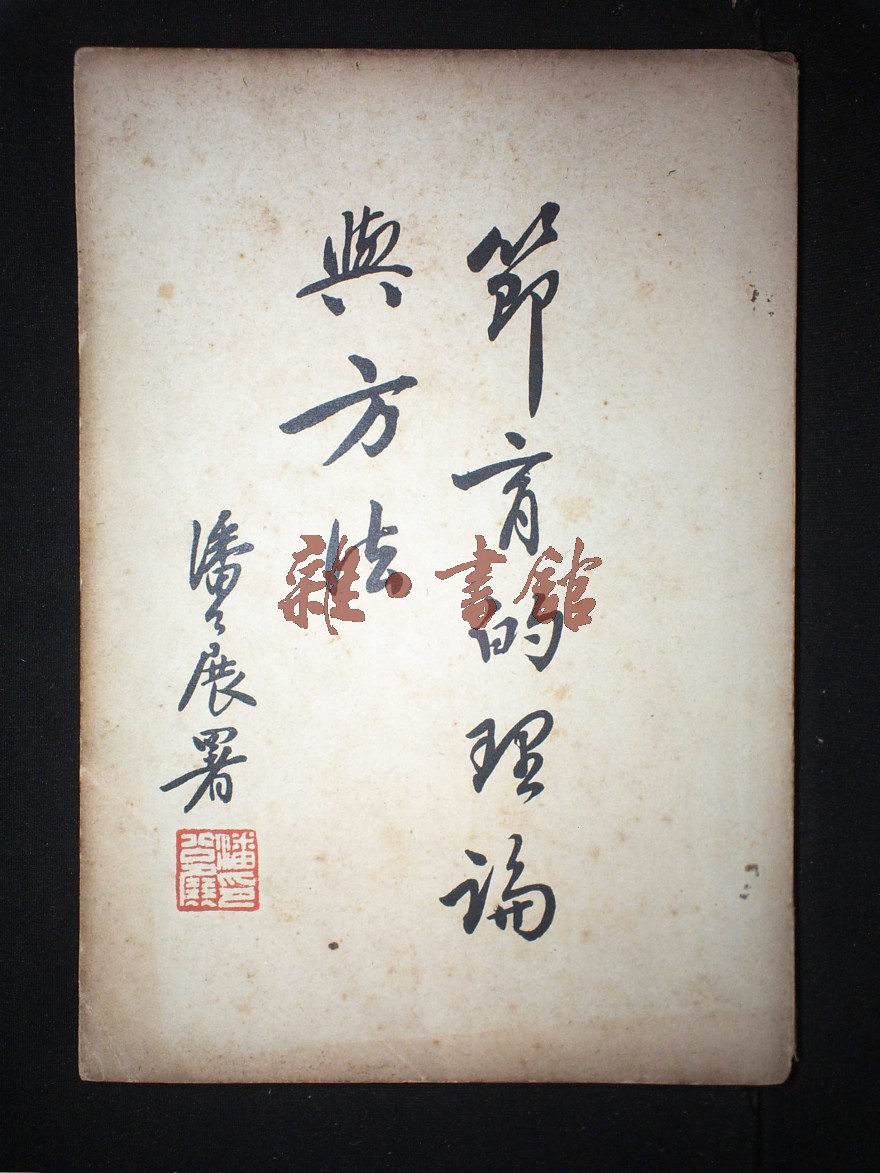 節育的理論
與方法
潘公展署
雜·書館